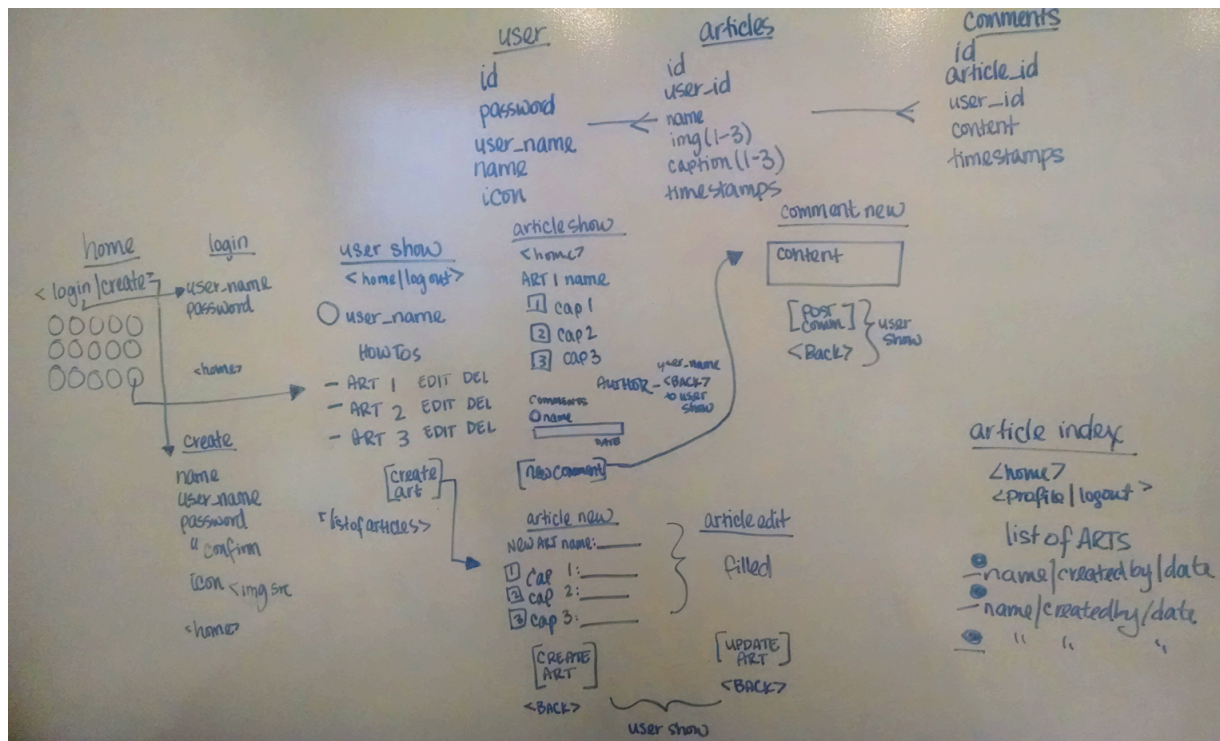 user
id
password
user_name
name
icon
articles
id
user_id
name
img(1-3)
caption(1-3)
timestamps
comments
id
article_id
user_id
content
timestamps
home
<login/create>
login
user_name
password
<home>
create
name
user_name
password
" confirm
icon <img src
<home>
user show
<home/logout>
user_name
HOWTOS
- ART 1 EDIT DEL
- ART 2 EDIT DEL
- ART 3 EDIT DEL
[create
art]
<listofarticles>
article show
<home>
ART 1 name
1 cap 1
2 cap2
3 cap3
user_name
AUTHOR - <BACK>
to user
show
COMMENTS
name
DATE
[new comment]
comment new
content
[POST
comm]
<BACK>
user
show
article new
NEW ART name:____
1 Cap 1:____
2 cap 2:____
3 cap 3:____
[CREATE
ART]
<BACK>
article edit
filled
[UPDATE
ART]
<BACK>
user show
article index
<home>
<profile/logout>
list of ARTS
-name/createdby/date
-name/createdby/date
" " "